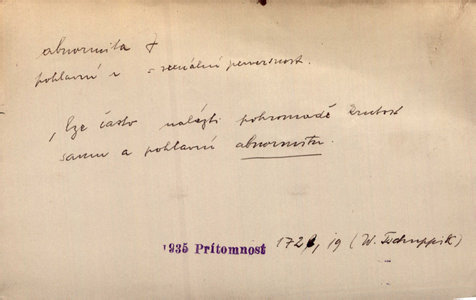 abnormita f
pohlavní = sexuální perversnost.
„lze často nalézti pohromadě krutost
samu a pohlavní abnormitu.
1935 Prítomnost 172, 19 (W. Tschuppik)